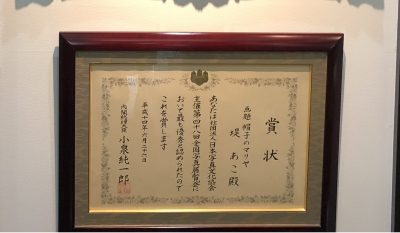 賞状
画題 帽子のマリヤ
堤 あこ殿
あなたは社団法人日本写真文化協会
主催第四十八回全国写真展覧会に
おいて最も優秀と認められたので
これを賞します
平成十四年六月二十六日
内閣総理大臣 小泉純一郎